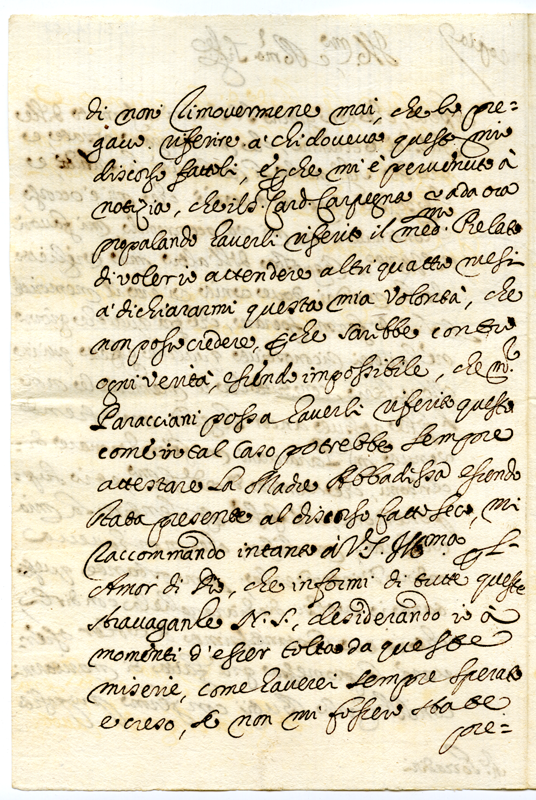 di non rimovermene mai, che la pre=
gavo riferire à chi doveva questi miei
discorsi fattoli, e perche mi è pervenuto à
notizia, che il S. Card. Carpegna vada ora
propalando haverli riferito il med.mo Prelato
di voler io attendere altri quattro mesi
à dichiararmi questa mia volontà, che
non posso credere, perche sarebbe contro
ogni verità, essendo impossibile, che m.r
Paracciani possa haverli riferito questo
come in tal caso potrebbe sempre
attestare La Madre Abbadissa essendo
stata presente al discorso fatto seco, mi
raccommando intanto à V. S. Ill.ma per l'
Amor di Dio, che informi di tutte queste
stravaganze N. S., desiderando io à
momenti d'esser tolta da queste
miserie, come haverei sempre sperato
e creso, se non mi fossero state
pre=